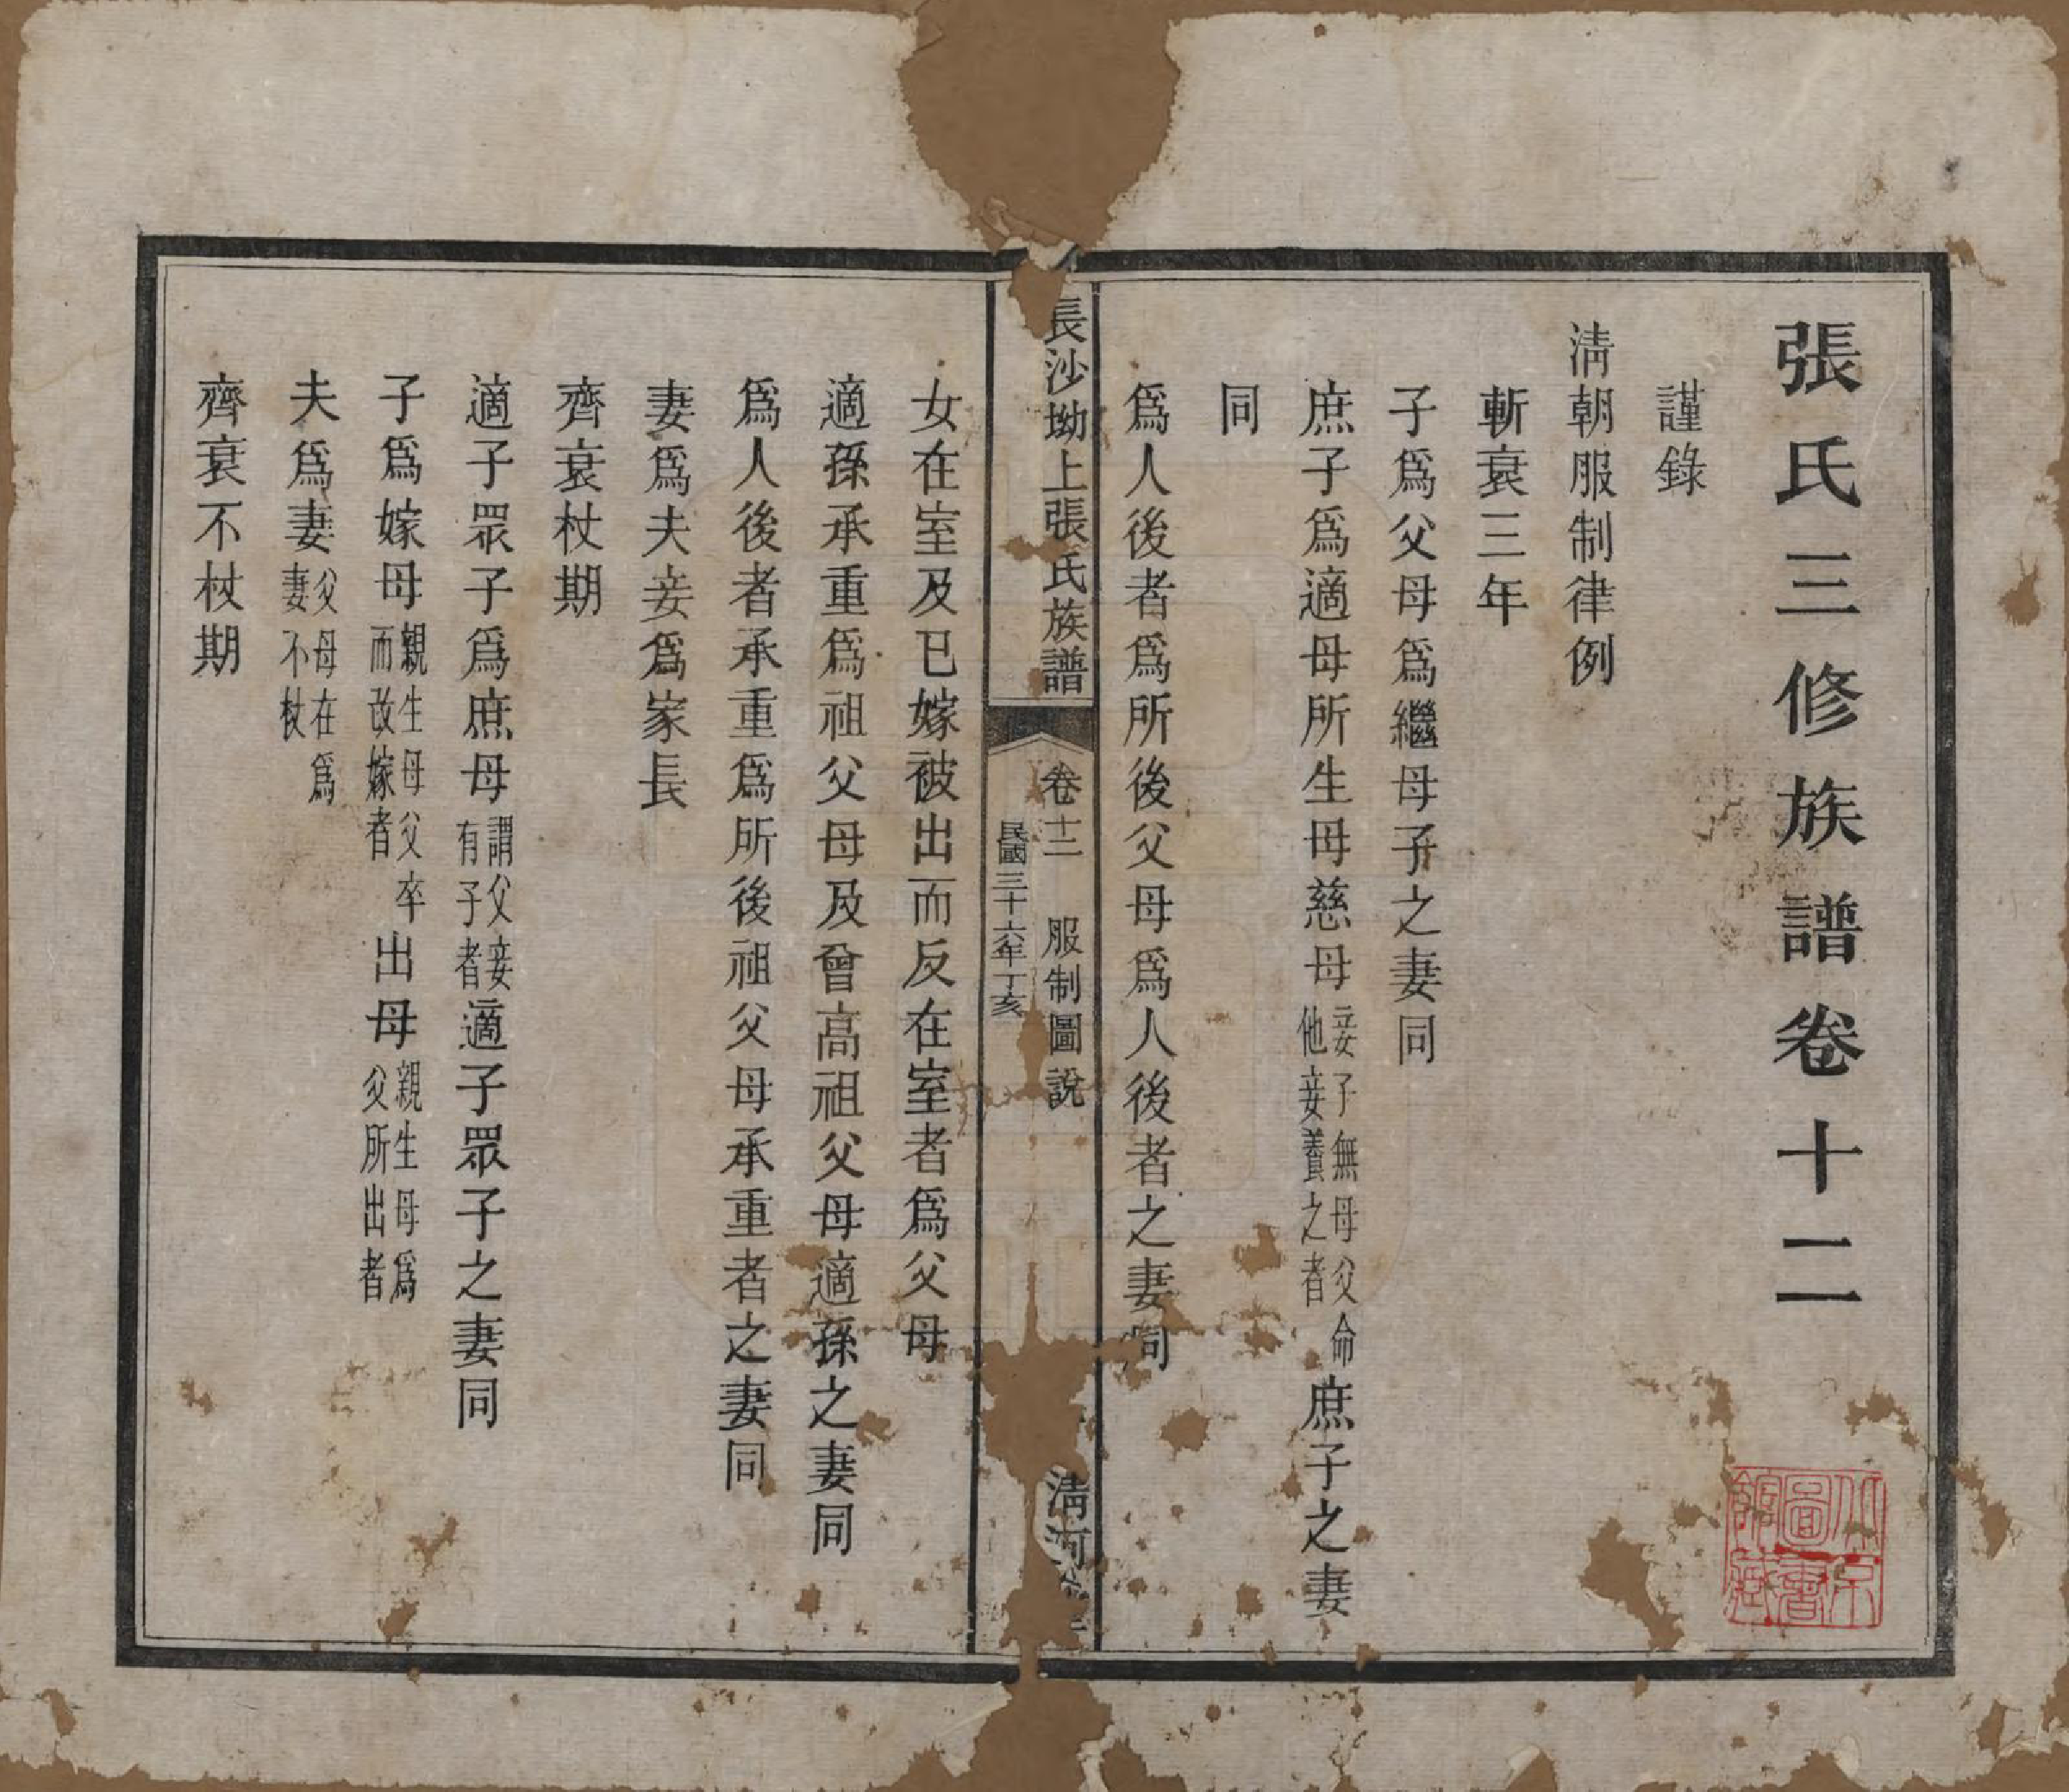 張氏三修族譜卷十二
謹錄
淸朝服制律例
斬衰三年
子爲父母爲繼母子之妻同
庶子爲適母所生母慈母妾子無母父命他妾養之者庶子之妻
同
爲人後者爲所後父母爲人後者之妻同
長沙坳上張氏族譜
卷十二 服制圖說
民國三十六年丁亥
淸河
女在室及已嫁被出而反在室者爲父母
適孫承重爲祖父母及曾高祖父母適孫之妻同
爲人後者承重爲所後祖父母承重者之妻同
妻爲夫妾爲家長
齊衰杖期
適子眾子爲庶母謂父妾有子者適子眾子之妻同
子爲嫁母親生母父卒而改嫁者出母親生母爲父所出者
夫爲妻父母在爲妻不杖
齊衰不杖期
北京圖書館藏